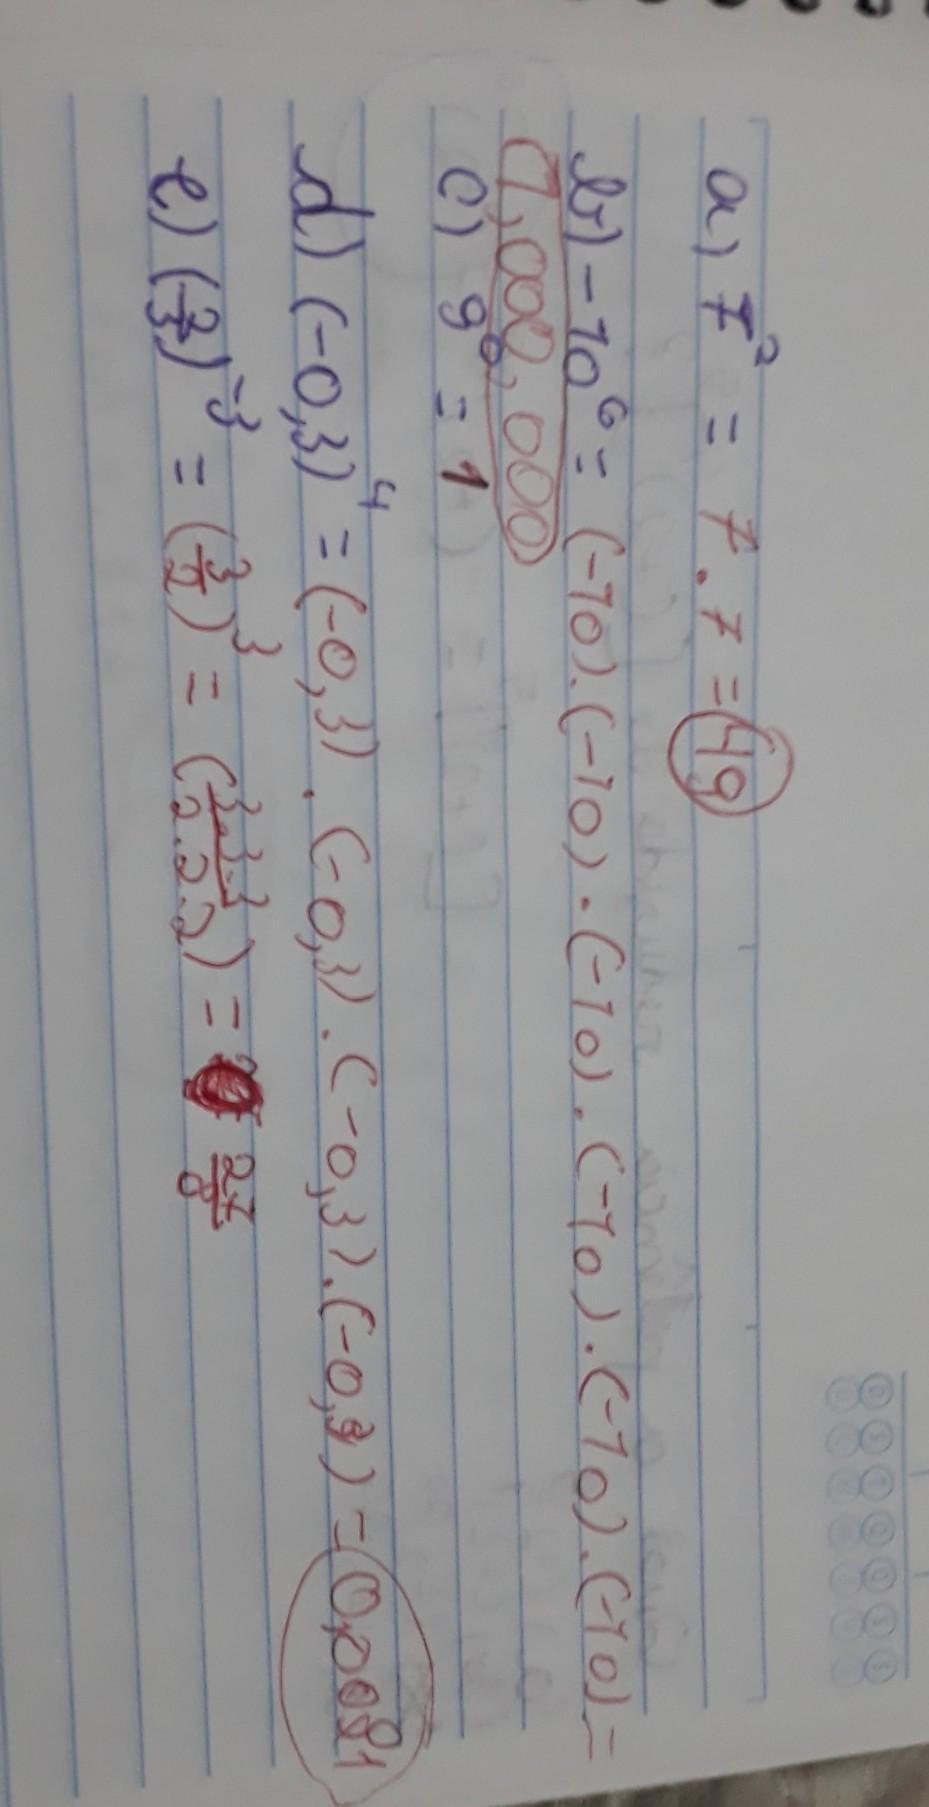 a) 7² = 7 . 7 = 49
b) -10⁶ = (-10).(-10).(-10).(-10).(-10).(-10) =
1,000,000
c) 9⁰ = 1
d) (-0,3)⁴ = (-0,3).(-0,3).(-0,3).(-0,3) = 0,0081
e) (2/3)⁻³ = (3/2)³ = (3.3.3/2.2.2) = 27/8